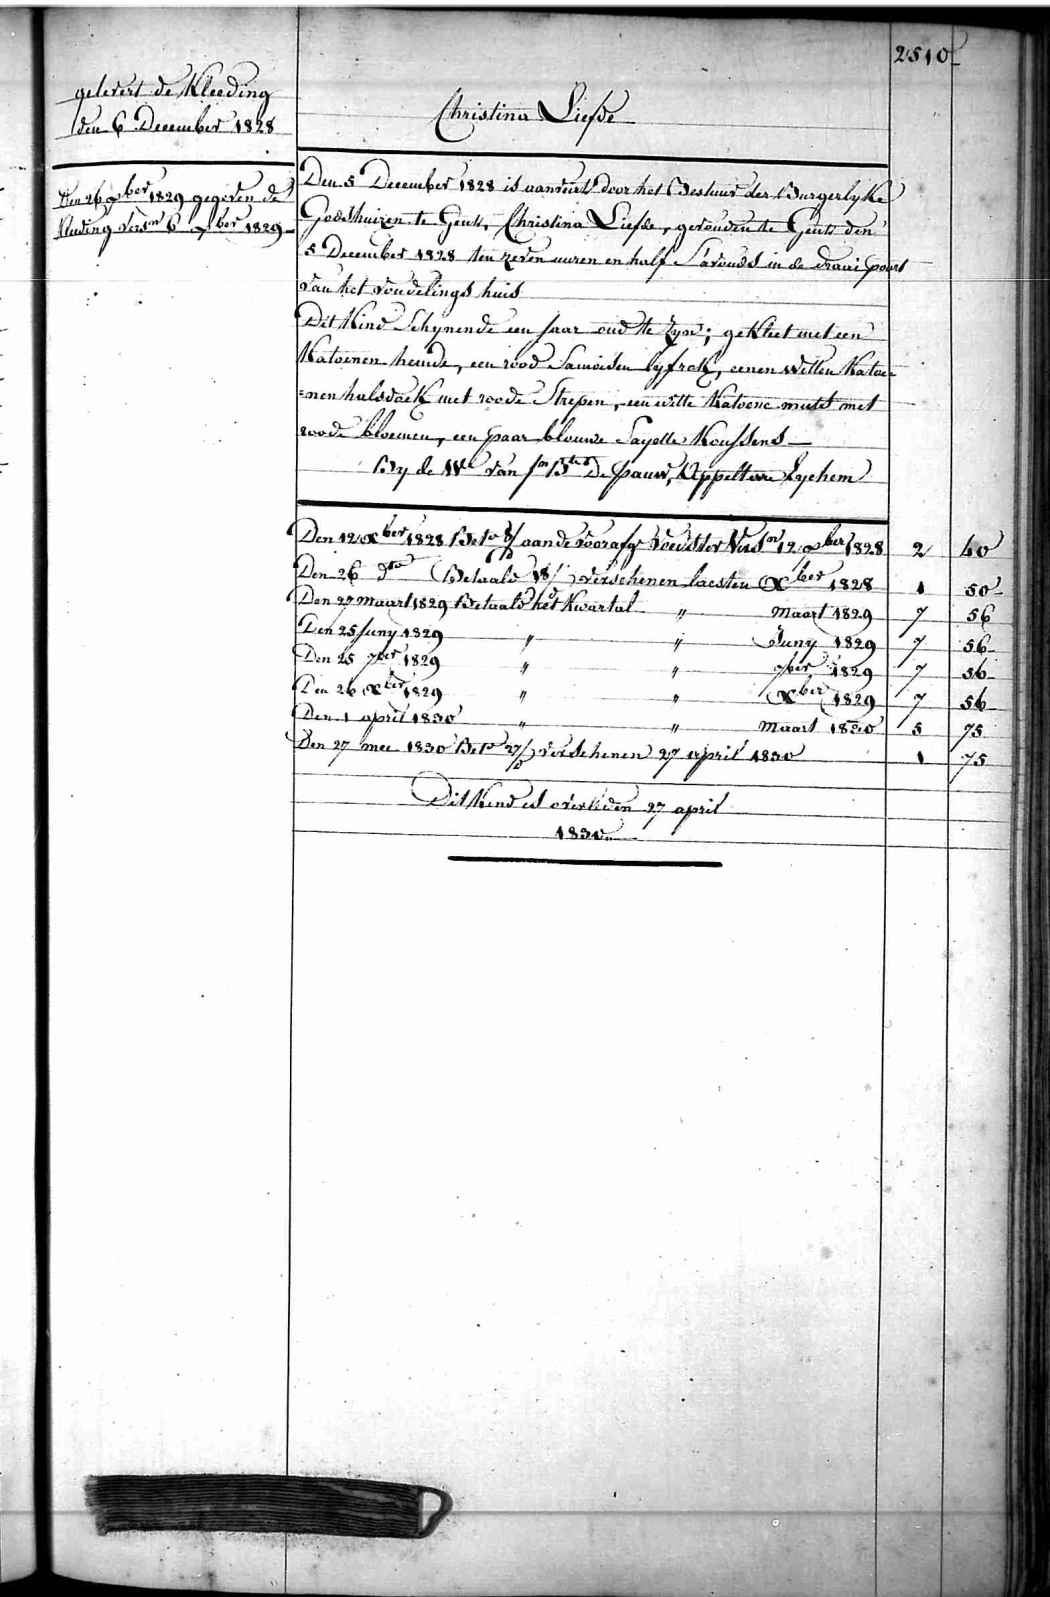 2510
gelevert de Kleeding
den 6 December 1828
Christina Liefde
Den 26 xber 1829 gegeven de
Kleeding versn 6 xber 1829
Den 5 December 1828 is aanveird door het Bestuur der Burgerlyke
Godshuizen te Gent, Christina Liefde, gevonden te Gent den
5 December 1828 ten zeven uuren en half s'avonds in de draai poort
van het vondelings huis
Dit Kind schynende een jaar oud te zyn; gekleet met een
Katoenen hemde, een rood Samoisen lyfrok, eenen witten Katoe=
=nen halsdoek met roode Strepen, een witte Katoene muts met
roode bloemen, een paar blouwe Sayette Koussens
By de We van Jn Bte De pauw, Appelterre Eychem
Den 12 xber 1828 Beto 8/ aan de voorafge Voedster Versn 12 xber 1828 2 40
Den 26 dto Betaald 18/ verschenen laesten Xber 1828 1 50
Den 27 maart 1829 Betaald het Kwartal " Maart 1829 7 56
Den 25 Juny 1829 " " Juny 1829 7 56
Den 25 7ber 1829 " " 7ber 1829 7 56
Den 26 xber 1829 " " Xber 1829 7 56
Den 1 april 1830 " " Maart 1830 5 75
Den 27 mei 1830 Beto 27/ verschenen 27 april 1830 1 75
Dit Kind is overleden 27 april
1830